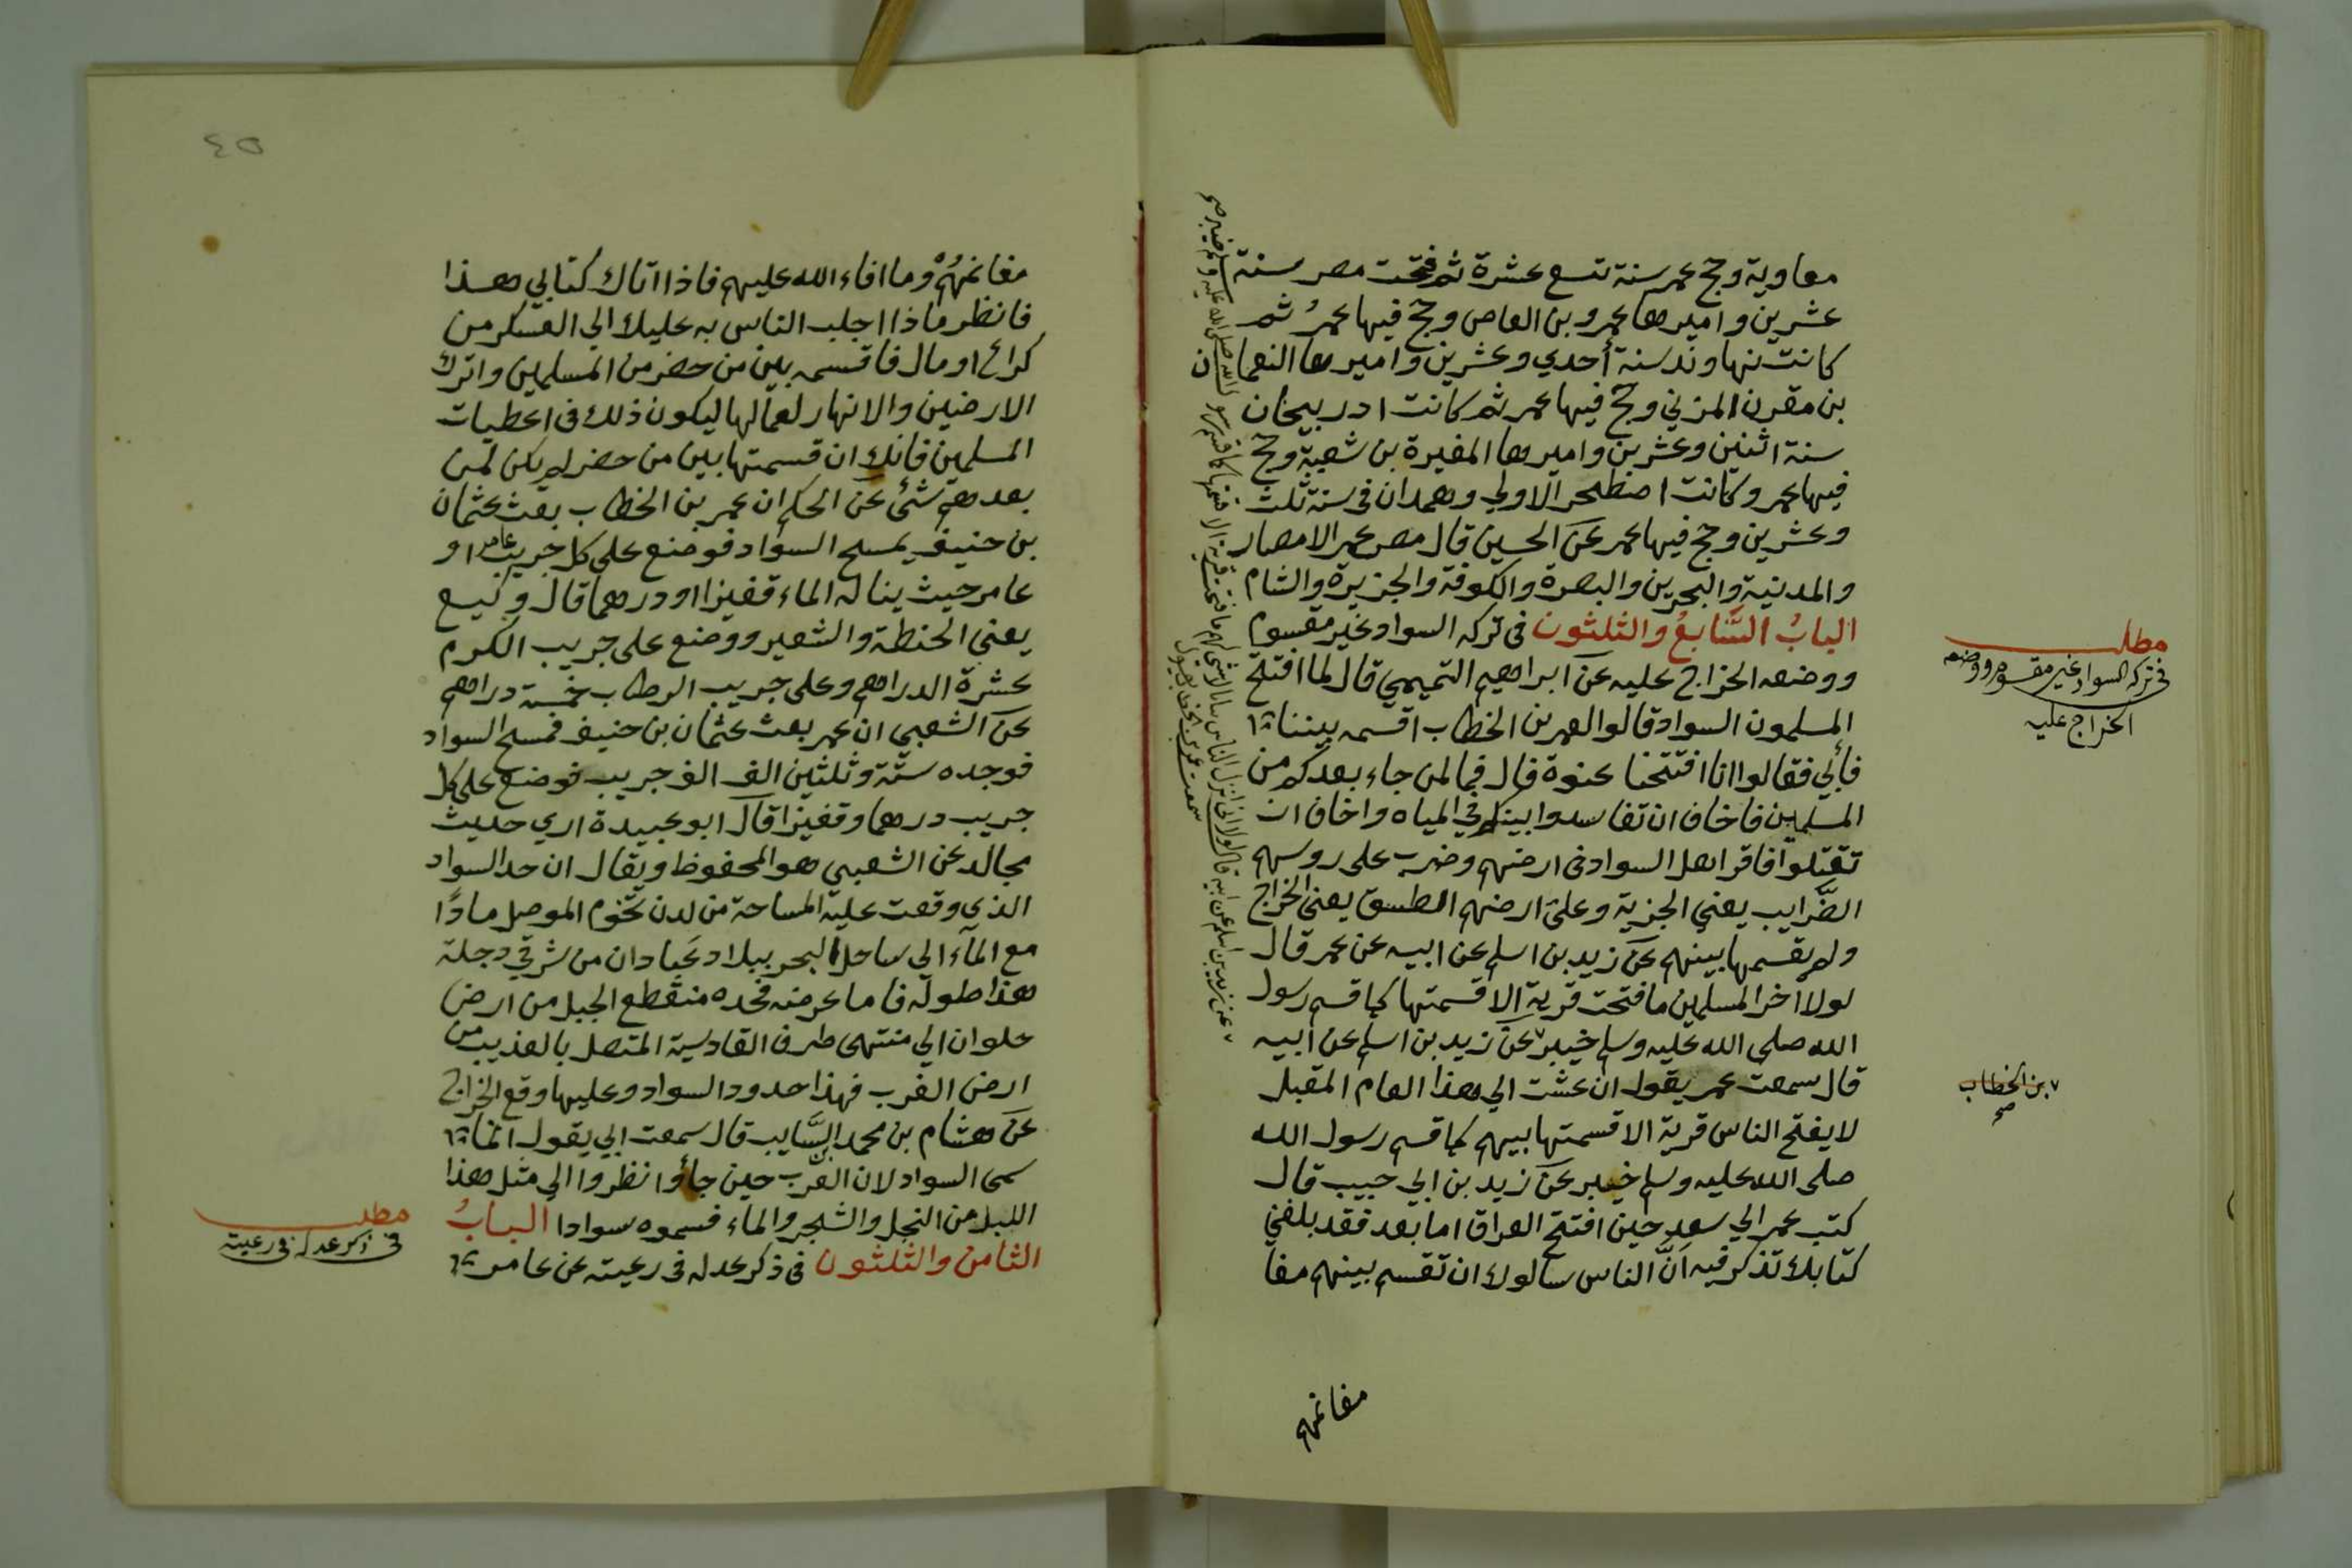 معاوية وحج عمر سنة تسع عشرة ثم فتحت مصر سنة
عشرين واميرها عمرو بن العاص وحج فيها عمرُ ثم
كانت نهاوند سنة أحدي وعشرين واميرها النعمان
بن مقرن المزني وحج فيها عمر ثم كانت ادربيجان
سنة اثنين وعشرين واميرها المغيرة بن شعبة وحج
فيها عمر وكانت اصطخر الاولي وهمدان في سنة ثلث
وعشرين وحج فيها عمر عن الحسين قال مصر عمر الامصار
والمدنية والبحرين والبصرة والكوفة والجزيرة والشام
البابُ السَّابعُ والثلثون في تركه السواد غير مقسوم
ووضعه الخراج عليه عن ابراهيم التميمي قال لما افتتح
المسلمون السواد قالوا لعمر بن الخطاب اقسمه بيننا
فأبي فقالوا انا افتتحنا عنوة قال فما لمن جاء بعدكم من
المسلمين فاخاف ان تفاسدوا بينكم في المياه واخاف ان
تقتتلوا فاقر اهل السواد في ارضهم وضرب علي روسهم
الضَّرايب يعني الجزية وعلي ارضهم الطسق يعني الخراج
ولم يقسمها بينهم عن زيد بن اسلم عن ابيه عن عمر قال
لولا اخر المسلمين ما فتحت قرية الا قسمتها كما قسم رسول
الله صلي الله عليه وسلم خيبر عن زيد بن اسلم عن ابيه
قال سمعت عمر يقول ان عشت الي هذا العام المقبل
لا يفتح الناس قرية الا قسمتها بينهم كما قسم رسول الله
صلي الله عليه وسلم خيبر عن زيد بن ابي حبيب قال
كتب عمر الي سعد حين افتتح العراق اما بعد فقد بلغني
كتابك تذكر فيه انَّ الناس سالوك ان تقسم بينهم مغا
مغانمهم
مطلب
في تركه السواد غير مقسوم ووضعه
الخراج عليه
بن الخطاب
صح
عن زيد بن اسلم عن ابيه قال لولا اني اترك الناس ببانا لا شي لهم ما فتحت قرية الا قسمتها كما قسم رسول الله صلي الله عليه وسلم خيبر صح
سمعت عمر بن الخطاب يقول
٤٥
مغانمهُمْ وما افاء الله عليهم فاذا اتاك كتابي هذا
فانظر ماذا اجلب الناس به عليك الي العسكر من
كراع او مال فاقسمه بين من حضر من المسلمين واترك
الارضين والانهار لعمالها ليكون ذلك في اعطيات
المسلمين فانك ان قسمتها بين من حضر لم يكن لمن
بعدهم شئ عن الحكم ان عمر بن الخطاب بعث عثمان
بن حنيف يمسح السواد فوضع علي كل جريب عامر او
عامر حيث يناله الماء قفيزا او درهما قال وكيع
يعني الحنطة والشعير ووضع علي جريب الكرم
عشرة الدراهم وعلي جريب الرطاب خمسة دراهم
عن الشعبي ان عمر بعث عثمان بن حنيف فمسح السواد
فوجده ستَّة وثلثين الف الف جريب فوضع علي كل
جريب درهما وقفيزا قال ابو عبيدة اري حديث
مجالد عن الشعبي هو المحفوظ ويقال ان حد السواد
الذي وقعت عليه المساحة من لدن تخوم الموصل مادًا
مع الماء الي ساحل البحر ببلاد عبادان من شرقي دجلة
هذا طوله فاما عرضه فحده منقطع الجبل من ارض
حلوان الي منتهي طرف القادسية المتصل بالعذيب من
ارض الغرب فهذا حدود السواد وعليها وقع الخراج
عن هشام بن محمد السَّايب قال سمعت ابي يقول انما
سمي السواد لان العَرب حين جاؤا نظروا الي مثل هذا
الليل من النخل والشجر والماء فسموه سوادا البابُ
الثامن والثلثون في ذكر عدله في رعيته عن عامر
مطلب
في ذكر عدله في رعيته